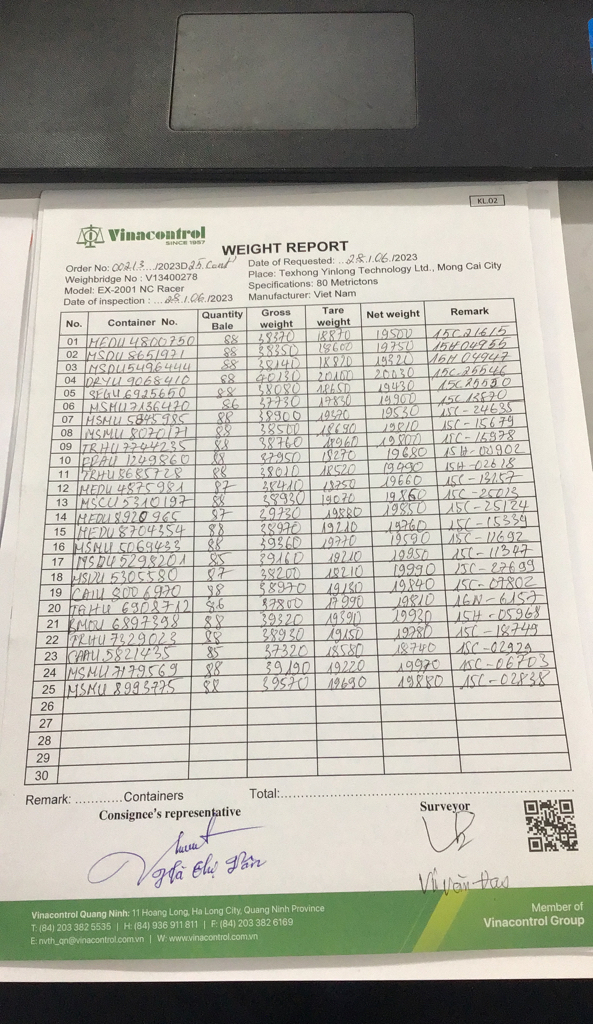 KL.02
Vinacontrol
SINCE 1957
WEIGHT REPORT
Order No: 00213.../2023D25.Cont Date of Requested: ...28.1.06./2023
Weighbridge No : V13400278 Place: Texhong Yinlong Technology Ltd., Mong Cai City
Model: EX-2001 NC Racer Specifications: 80 Metrictons
Date of inspection: ...28.1.06./2023 Manufacturer: Viet Nam
No. Container No. Quantity Bale Gross weight Tare weight Net weight Remark
01 MEDU 4800750 88 38370 18870 19500 15C21615
02 MSDU 8651971 88 38350 18600 19750 15H04955
03 MSDU5496444 88 38140 18820 19320 15H 04947
04 DRYU 9068410 88 40130 20100 20030 15C26546
05 SEGU 6925650 88 38080 18650 19430
06 MSMU7136470 86 37730 17830 19900 15C13870
07 MSMU 5845985 88 38900 19370 19530 15C-24635
08 MSMU 8070171 88 38500 18690 19810 15C-15679
09 TRHU 7744235 88 38760 18960 19800 15C-15978
10 1249860 88 37950 18270 19680 15H-00902
11 TRHU 8685728 88 38010 18520 19490 15H-02618
12 MEDU 4875981 87 38410 18750 19660 15C-13157
13 MSCU 5310197 88 38930 19070 19860 15C-25023
14 MEDU 8920965 87 39730 19880 19850 15C-25124
15 MEDU 8704354 88 38970 19210 19760 15C-15339
16 MSMU 5069433 88 39360 19770 19590 15C-11692
17 MSDU 5298201 85 39160 19210 19950 15C-11347
18 MSDU 5305580 87 38200 18210 19990 15C-27699
19 CAIU 8006970 88 38970 19130 19840 15C-07802
20 TGHU 6908712 86 37800 17990 19810 16N-6157
21 BMOU 6897398 88 39320 19390 19930 15H-05968
22 TRHU 7329023 88 38930 19150 19780 15C-18749
23 CAAU 5821435 85 37320 18580 18740 15C-02929
24 MSMU 7179569 88 39190 19220 19970 15C-06703
25 MSMU 8993775 88 39570 19690 19880 15C-02838
26
27
28
29
30
Remark: ............Containers Total:
Consignee's representative Surveyor
Vinacontrol Quang Ninh: 11 Hoang Long, Ha Long City, Quang Ninh Province
T: (84) 203 382 5535 | H: (84) 936 911 811 | F: (84) 203 382 6169
E: nvth_qn@vinacontrol.com.vn | W: www.vinacontrol.com.vn
Member of
Vinacontrol Group